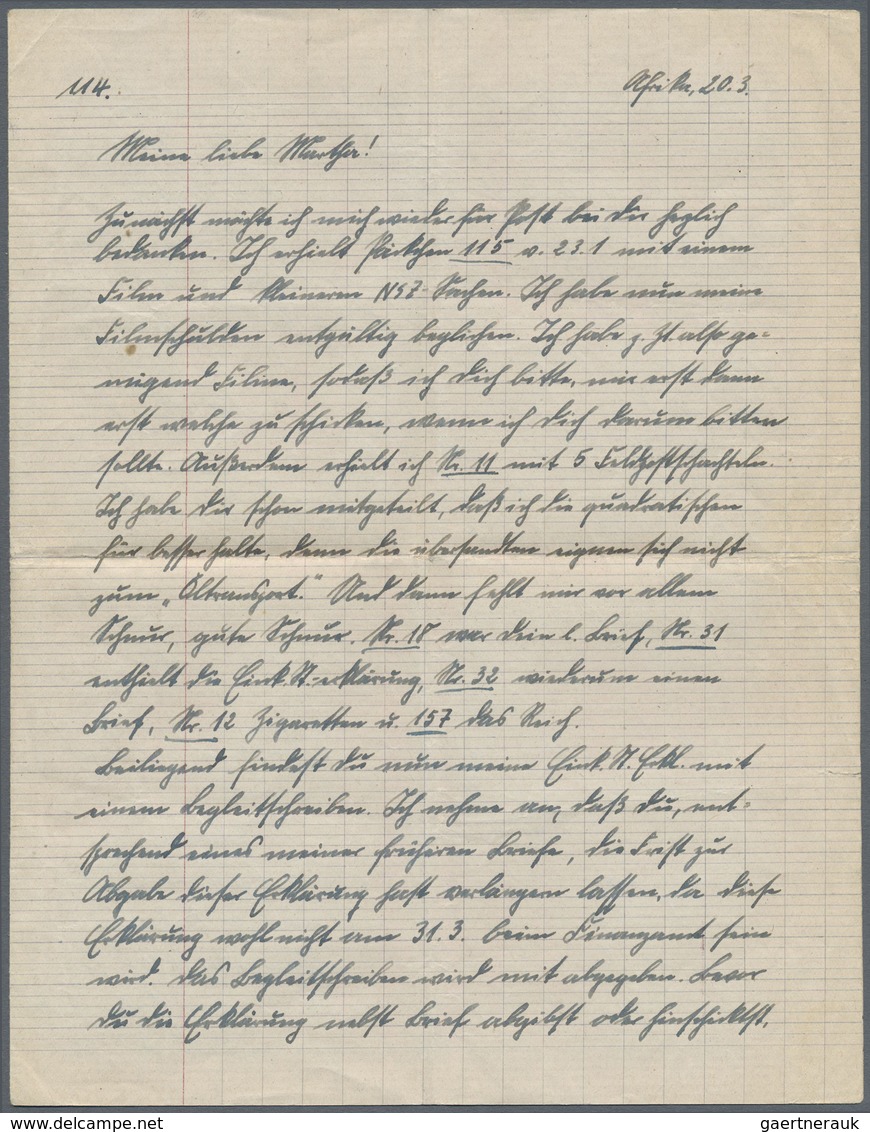 114.
Afrika, 20.3.
Meine liebe Martha!
Zunächst möchte ich mich wieder für Post bei Dir herzlich
bedanken. Ich erhielt Päckchen 115 v. 23.1 mit einem
Film und kleineren NSZ-Sachen. Ich habe nun meine
Filmschulden entgültig beglichen. Ich habe z. Zt. also ge-
nügend Filme, sodaß ich Dich bitte, mir erst dann
erst welche zu schicken, wenn ich Dich darum bitten
sollte. Außerdem erhielt ich Nr. 11 mit 5 Feldpostschachteln.
Ich habe Dir schon mitgeteilt, daß ich die quadratischen
für besser halte, denn die übersandten eignen sich nicht
zum „Öltransport." Und dann fehlt mir vor allem
Schnur, gute Schnur. Nr. 18 war Dein l. Brief, Nr. 31
enthielt die Eink. St.-erklärung, Nr. 32 wiederum einen
Brief, Nr. 12 Zigaretten u. 157 das Reich.
Beiliegend findest Du nun meine Eink. St. Erkl. mit
einem Begleitschreiben. Ich nehme an, daß Du, ent-
sprechend eines meiner früheren Briefe, die Frist zur
Abgabe dieser Erklärung hast verlängern lassen, da diese
Erklärung wohl nicht am 31.3. beim Finanzamt sein
wird. Das Begleitschreiben wird mit abgegeben. Bevor
Du die Erklärung nebst Brief abgibst oder hinschickst,
www.delcampe.net
gaertnerauk